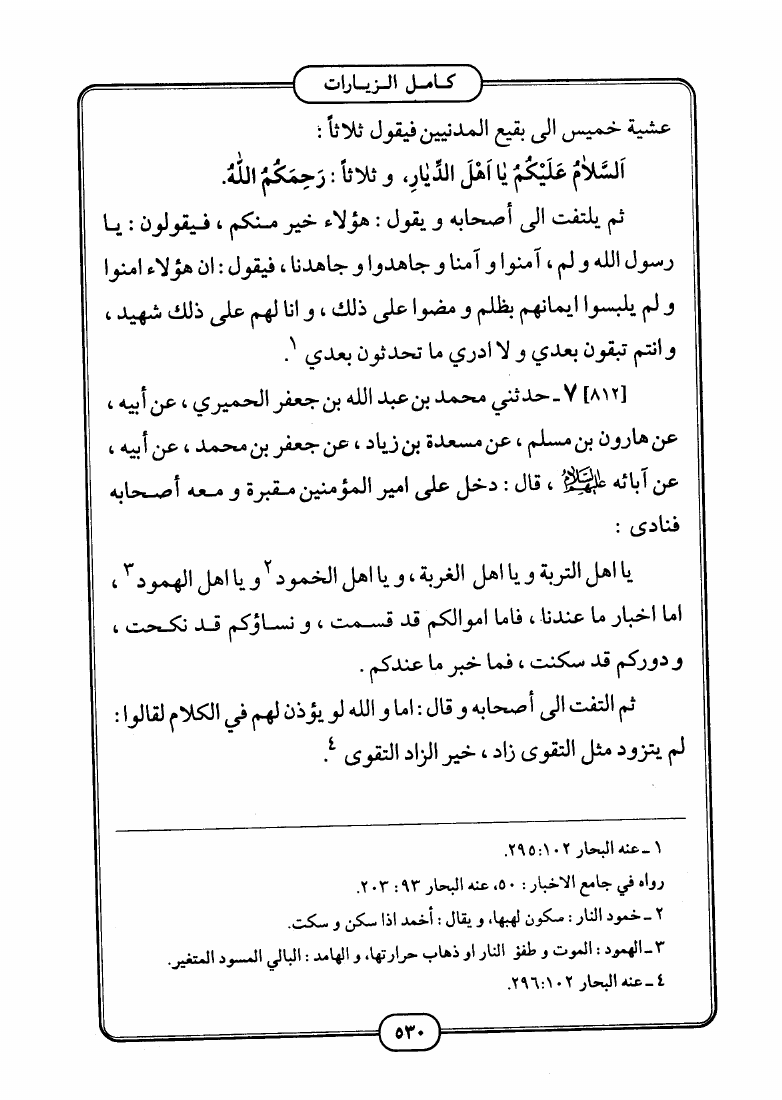 كامل الزيارات
عشية خميس الى بقيع المدنيين فيقول ثلاثاً :
اَلسَّلاٰمُ عَلَيْكُمْ يٰا اَهْلَ الدِّيٰارِ، و ثلاثاً : رَحِمَكُمُ اللّٰهُ.
ثم يلتفت الى أصحابه و يقول : هؤلاء خير منكم ، فيقولون : يا
رسول الله و لم ، آمنوا و آمنا و جاهدوا و جاهدنا ، فيقول : ان هؤلاء امنوا
و لم يلبسوا ايمانهم بظلم و مضوا على ذلك ، و انا لهم على ذلك شهيد ،
و انتم تبقون بعدي و لا ادري ما تحدثون بعدي ١.
[٨١٢] ٧ ـ حدثني محمد بن عبد الله بن جعفر الحميري ، عن أبيه ،
عن هارون بن مسلم ، عن مسعدة بن زياد ، عن جعفر بن محمد ، عن أبيه ،
عن آبائه عليهم السلام ، قال : دخل على امير المؤمنين مقبرة و معه أصحابه
فنادى :
يا اهل التربة و يا اهل الغربة ، و يا اهل الخمود ٢ و يا اهل الهمود ٣ ،
اما اخبار ما عندنا ، فاما اموالكم قد قسمت ، و نساؤكم قد نكحت ،
و دوركم قد سكنت ، فما خبر ما عندكم .
ثم التفت الى أصحابه و قال : اما و الله لو يؤذن لهم في الكلام لقالوا :
لم يتزود مثل التقوى زاد ، خير الزاد التقوى ٤.
١ ـ عنه البحار ١٠٢:٢٩٥.
رواه في جامع الاخبار : ٥٠، عنه البحار ٩٣ : ٢٠٣.
٢ ـ خمود النار : سكون لهبها، و يقال : أخمد اذا سكن و سكت.
٣ ـ الهمود : الموت و طفئ النار او ذهاب حرارتها، و الهامد : البالي المسود المتغير.
٤ ـ عنه البحار ١٠٢:٢٩٦.
٥٣٠